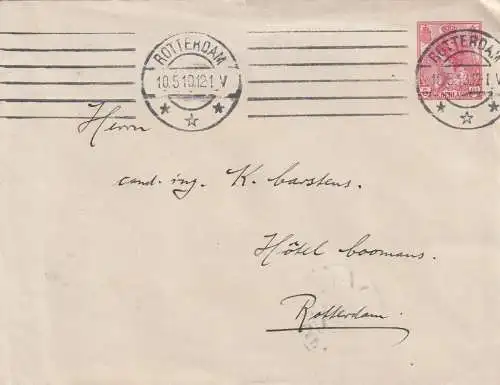 ROTTERDAM
10.5.10.12-1 V
ROTTERDAM
10.5.10.12-1 V
Herrn
cand. ing. K. Carstens.
Hôtel Coomans.
Rotterdam.